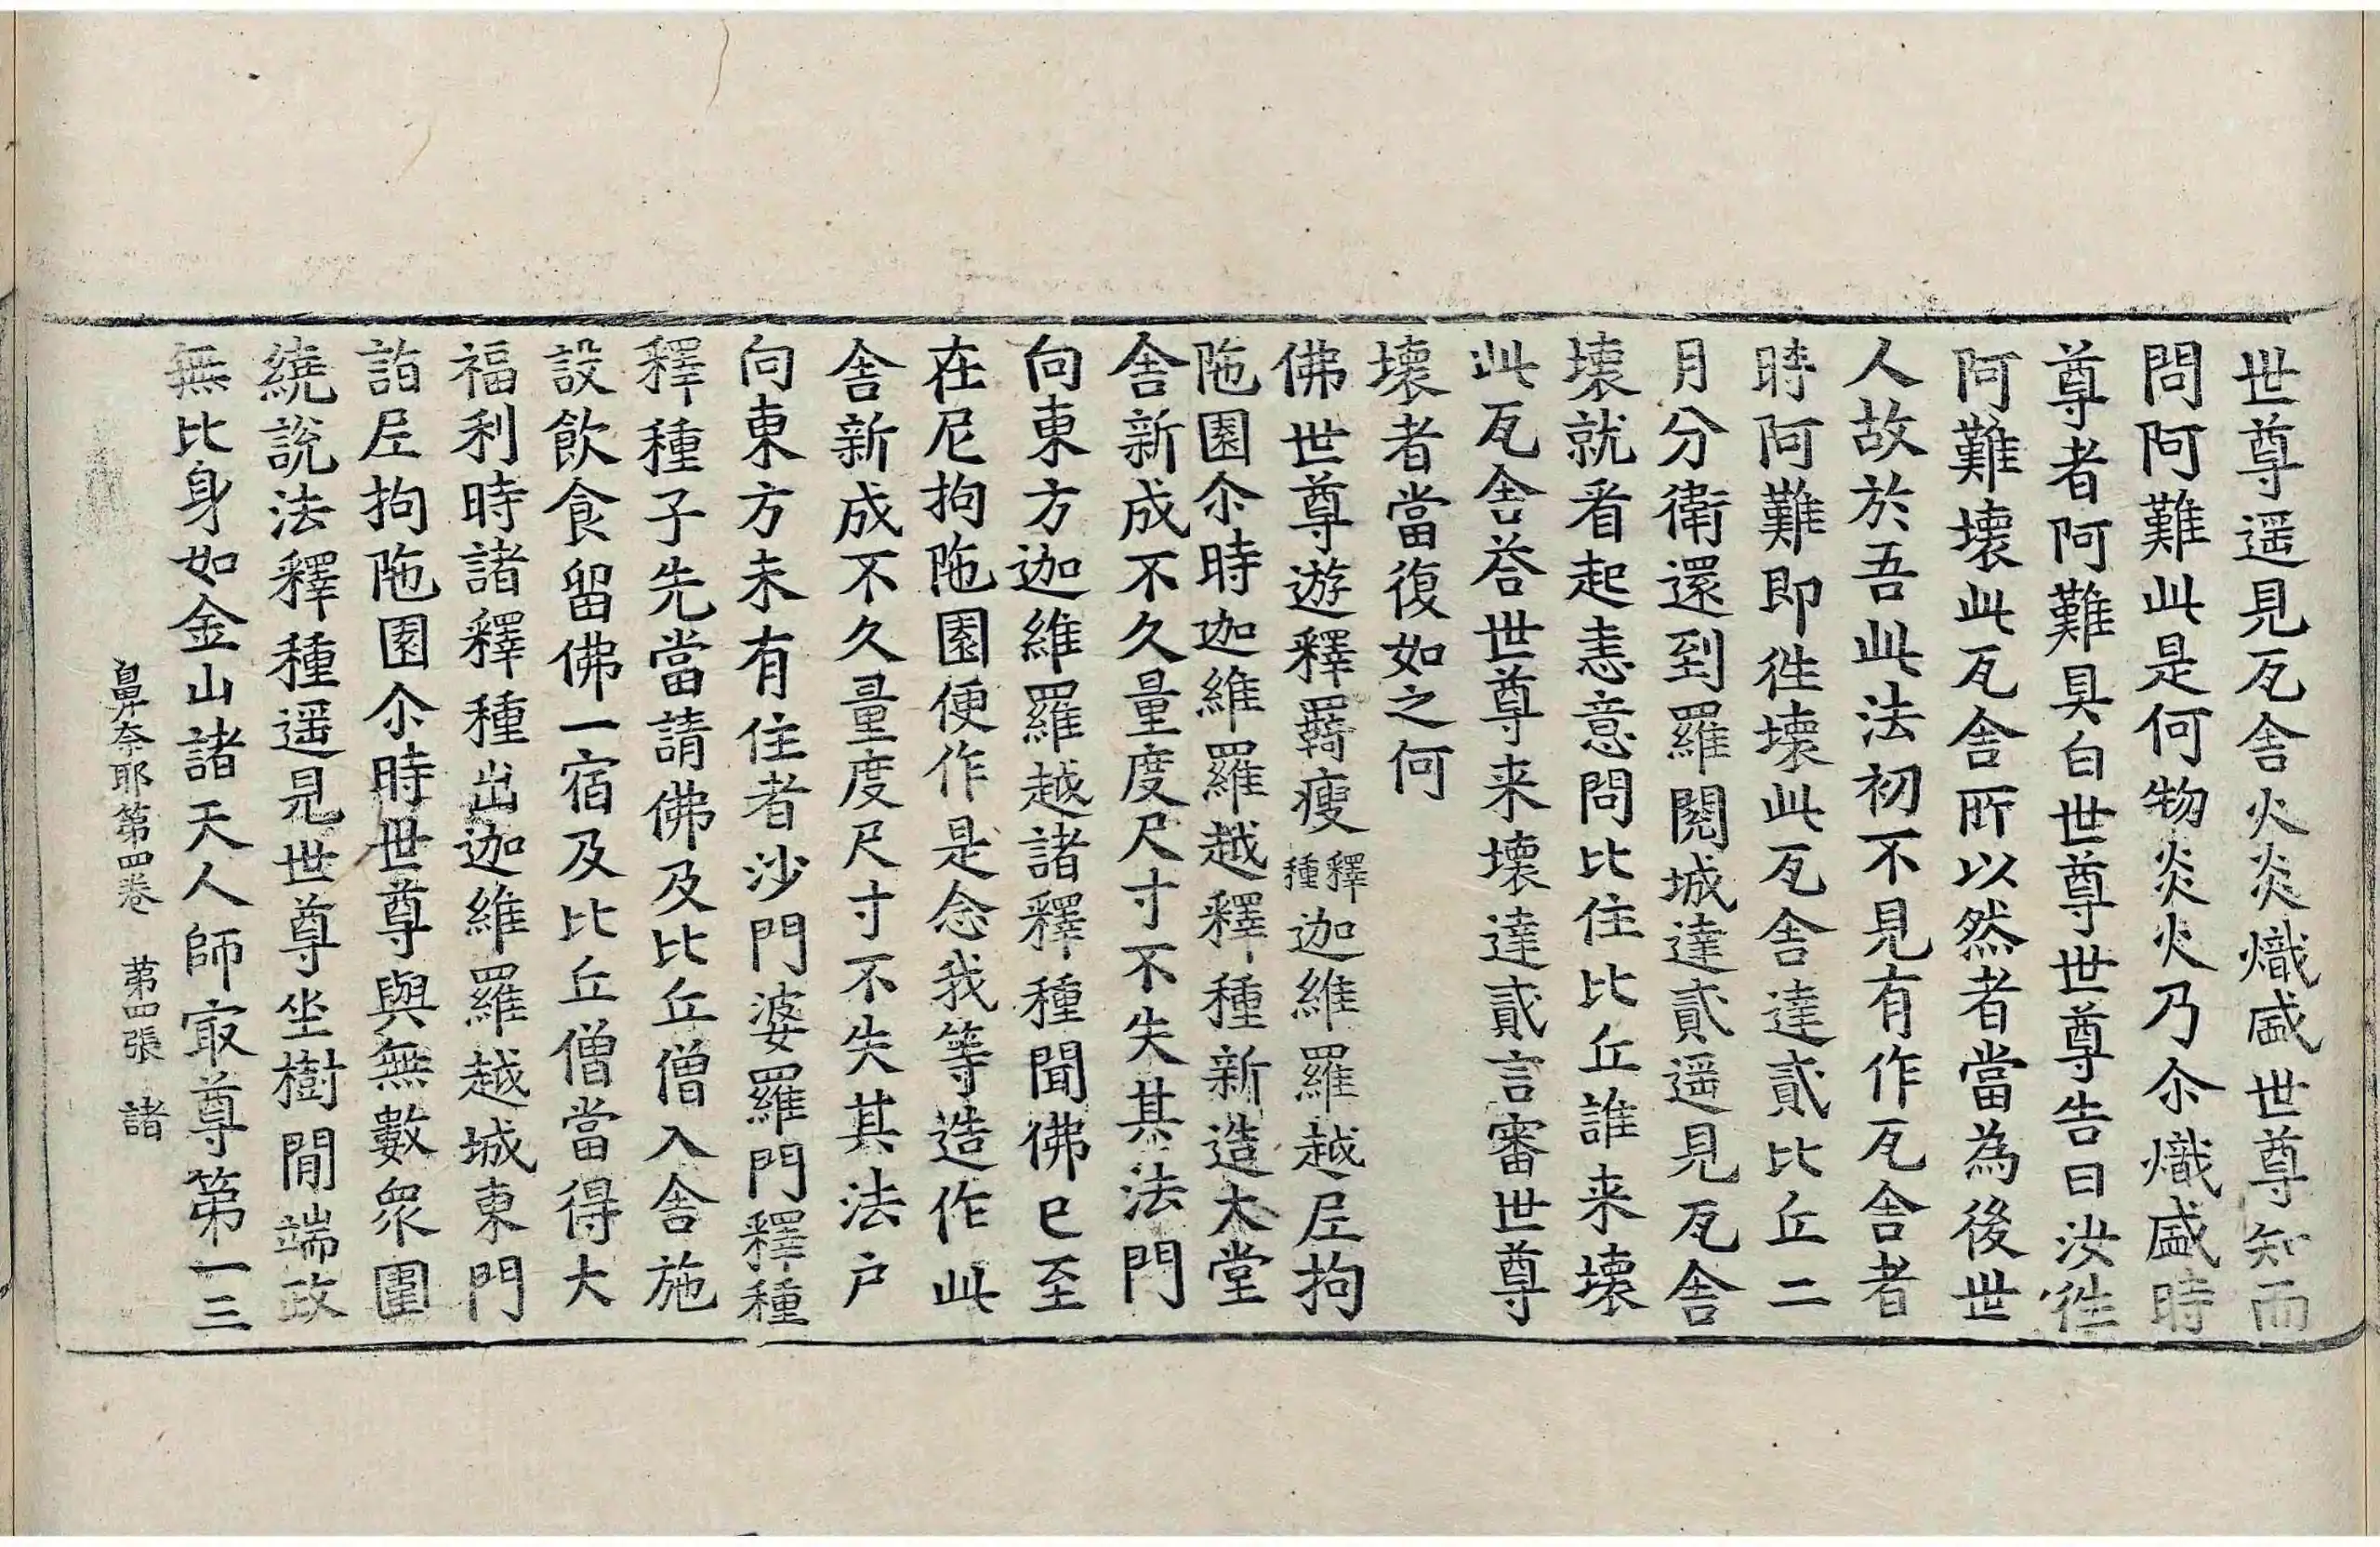 世尊遥見瓦舍火炎熾盛世尊知而
問阿難此是何物炎火乃尒熾盛時
尊者阿難具白世尊世尊告曰汝徃
阿難壞此瓦舍所以然者當為後世
人故於吾此法初不見有作瓦舍者
時阿難即徃壞此瓦舍達貳比丘二
月分衛還到羅閱城達貳遥見瓦舍
壞就看起恚意問比住比丘誰来壞
此瓦舍荅世尊来壞達貳言審世尊
壞者當復如之何
佛世尊遊釋羇瘦釋種迦維羅越𡰱拘
陁園尒時迦維羅越釋種新造大堂
舍新成不久量度尺寸不失其法門
向東方迦維羅越諸釋種聞佛已至
在尼拘陁園便作是念我等造作此
舍新成不久量度尺寸不失其法户
向東方未有住者沙門婆羅門釋種
釋種子先當請佛及比丘僧入舍施
設飲食留佛一宿及比丘僧當得大
福利時諸釋種出迦維羅越城東門
詣𡰱拘陁園尒時世尊與無數衆圍
繞說法釋種遥見世尊坐樹閒端政
無比身如金山諸天人師㝡尊第一三
鼻奈耶第四卷 第四張 諸